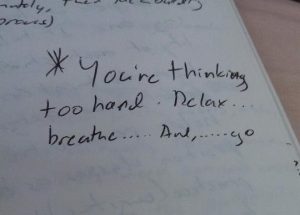 proves)
* You're thinking
too hard. Relax...
breathe..... And,.....go